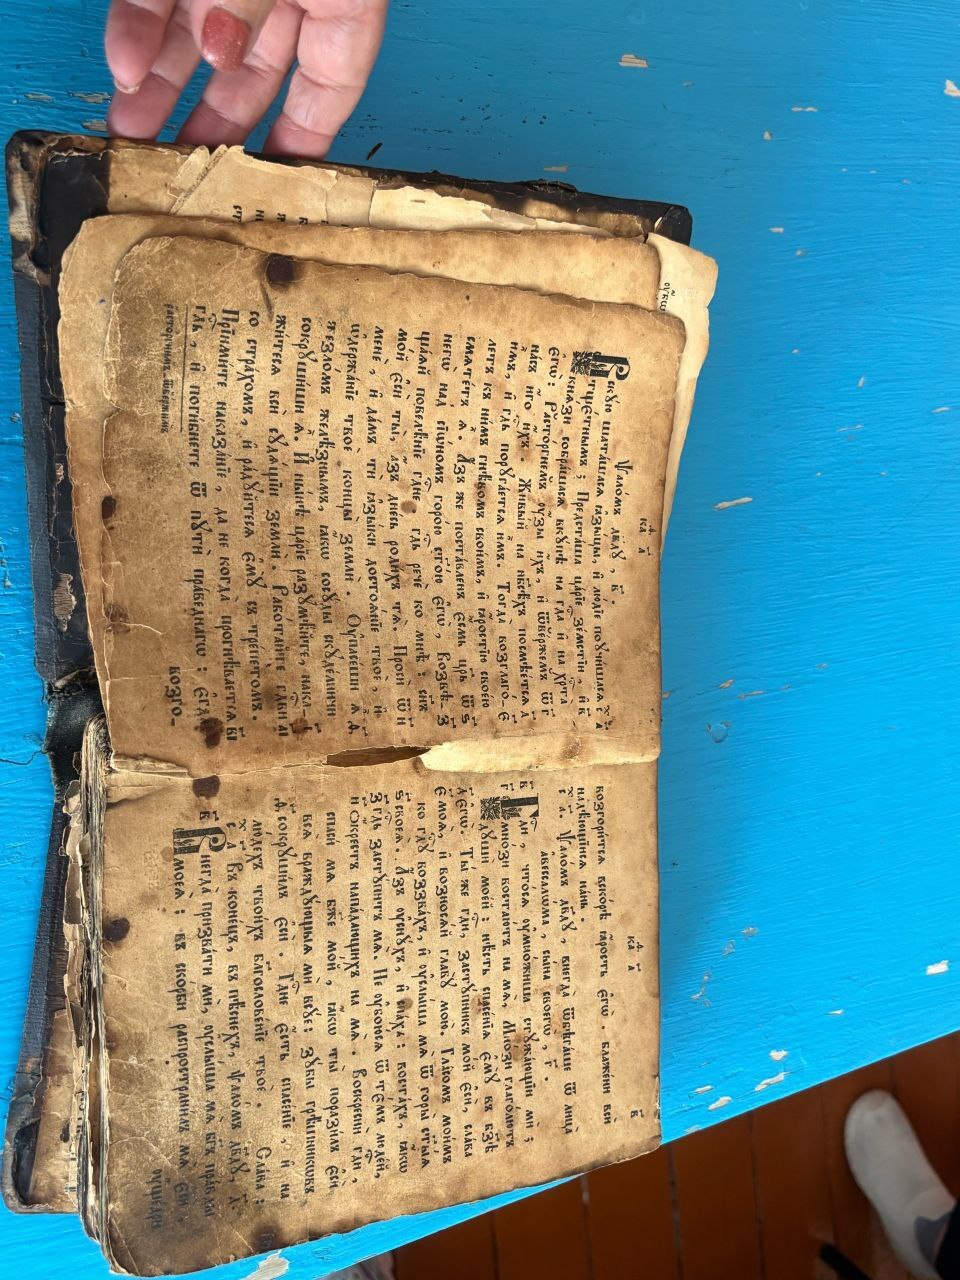 Ѱало́мъ дв҃дꙋ, в҃.
Вскꙋ́ю шата́шасѧ ꙗ҆зы́цы, и҆ лю́дїе поꙋчи́шасѧ
тще́тнымъ; Предста́ша ца́рїе зе́мстїи, и҆
кнѧ́зи собра́шасѧ вкꙋ́пѣ на гд҇а и҆ на хр҇та̀
є҆гѡ̀: Расто́ргнемъ ᲂу҆́зы и҆́хъ, и҆ ѿве́ржемъ ѿ
на́съ и҆́го и҆́хъ. Живы́й на нб҃сѣ́хъ посмѣе́тсѧ
и҆̀мъ, и҆ гд҇ь порꙋга́етсѧ и҆̀мъ. Тогда̀ возглаго-
летъ къ ни́мъ гнѣ́вомъ свои́мъ, и҆ ꙗ҆́ростїю свое́ю
смѧте́тъ ѧ҆̀. А҆́зъ же поста́вленъ є҆́смь цр҃ь ѿ
негѡ̀ над сїѡ́номъ горо́ю ст҃о́ю є҆гѡ̀, возвѣ-
ща́ѧй повелѣ́нїе гд҇не. гд҇ь речѐ ко мнѣ̀: сн҃ъ
мо́й є҆сѝ ты̀, а҆́зъ дне́сь роди́хъ тѧ̀. Просѝ ѿ
менѐ, и҆ да́мъ тѝ ꙗ҆зы́ки достоѧ́нїе твоѐ, и҆
ѡ҆держа́нїе твоѐ концы̀ землѝ. Оу҆пасе́ши ѧ҆̀
жезло́мъ желѣ́знымъ, ꙗ҆́кѡ сосꙋ́ды скꙋде́льничи
сокрꙋши́ши ѧ҆̀. И҆ ны́нѣ ца́рїе разꙋмѣ́йте, нака-
жи́тесѧ всѝ сꙋдѧ́щїи землѝ. Рабо́тайте гд҇ви
со стра́хомъ, и҆ ра́дꙋйтесѧ є҆мꙋ̀ съ тре́петомъ.
Прїими́те наказа́нїе, да не когда̀ прогнѣ́ваетсѧ
гд҇ь, и҆ поги́бнете ѿ пꙋтѝ пра́веднагѡ: є҆гда̀
возго-
возгори́тсѧ вско́рѣ ꙗ҆́рость є҆гѡ̀. блаже́ни всѝ
надѣ́ющїисѧ на́нь.
Ѱало́мъ дв҃дꙋ, внегда̀ ѿбѣга́ше ѿ лица̀
а҆вессало́ма, сы́на своегѡ̀, г҃.
Гд҇и, что́сѧ ᲂу҆мно́жиша стꙋжа́ющїи мѝ;
мно́зи востаю́тъ на мѧ̀, Мно́зи глаго́лютъ
дꙋшѝ мое́й: нѣ́сть спасе́нїѧ є҆мꙋ̀ въ бз҃ѣ
є҆гѡ̀. Ты́ же гд҇и, застꙋ́пникъ мо́й є҆сѝ, сла́ва
моѧ̀, и҆ возносѧ́й главꙋ̀ мою̀. Гла́сомъ мои́мъ
ко гд҇ꙋ воззва́хъ, и҆ ᲂу҆слы́ша мѧ̀ ѿ горы̀ ст҃ы́ѧ
своеѧ̀. А҆́зъ ᲂу҆снꙋ́хъ, и҆ спа́хъ: воста́хъ, ꙗ҆́кѡ
гд҇ь застꙋ́питъ мѧ̀. Не ᲂу҆бою́сѧ ѿ те́мъ люде́й,
ѡ҆́крестъ напа́дающихъ на мѧ̀. Воскреснѝ гд҇и,
спасѝ мѧ̀ бж҃е мо́й, ꙗ҆́кѡ ты̀ поразѝлъ є҆сѝ
всѧ̀ враждꙋ́ющыѧ мѝ всꙋ́е: зꙋ́бы грѣ́шникѡвъ
сокрꙋши́лъ є҆сѝ. Гд҇не є҆́сть спасе́нїе, и҆ на
лю́дехъ твои́хъ бл҃гослове́нїе твоѐ. Сла́ва:
Въ коне́цъ, въ пѣ́снехъ, ѱало́мъ дв҃дꙋ, д҃.
Внегда̀ призва́ти мѝ, ᲂу҆слы́ша мѧ̀ бг҃ъ пра́вды
моеѧ̀: въ ско́рби распространи́лъ мѧ̀ є҆сѝ,
ᲂу҆ще́дри